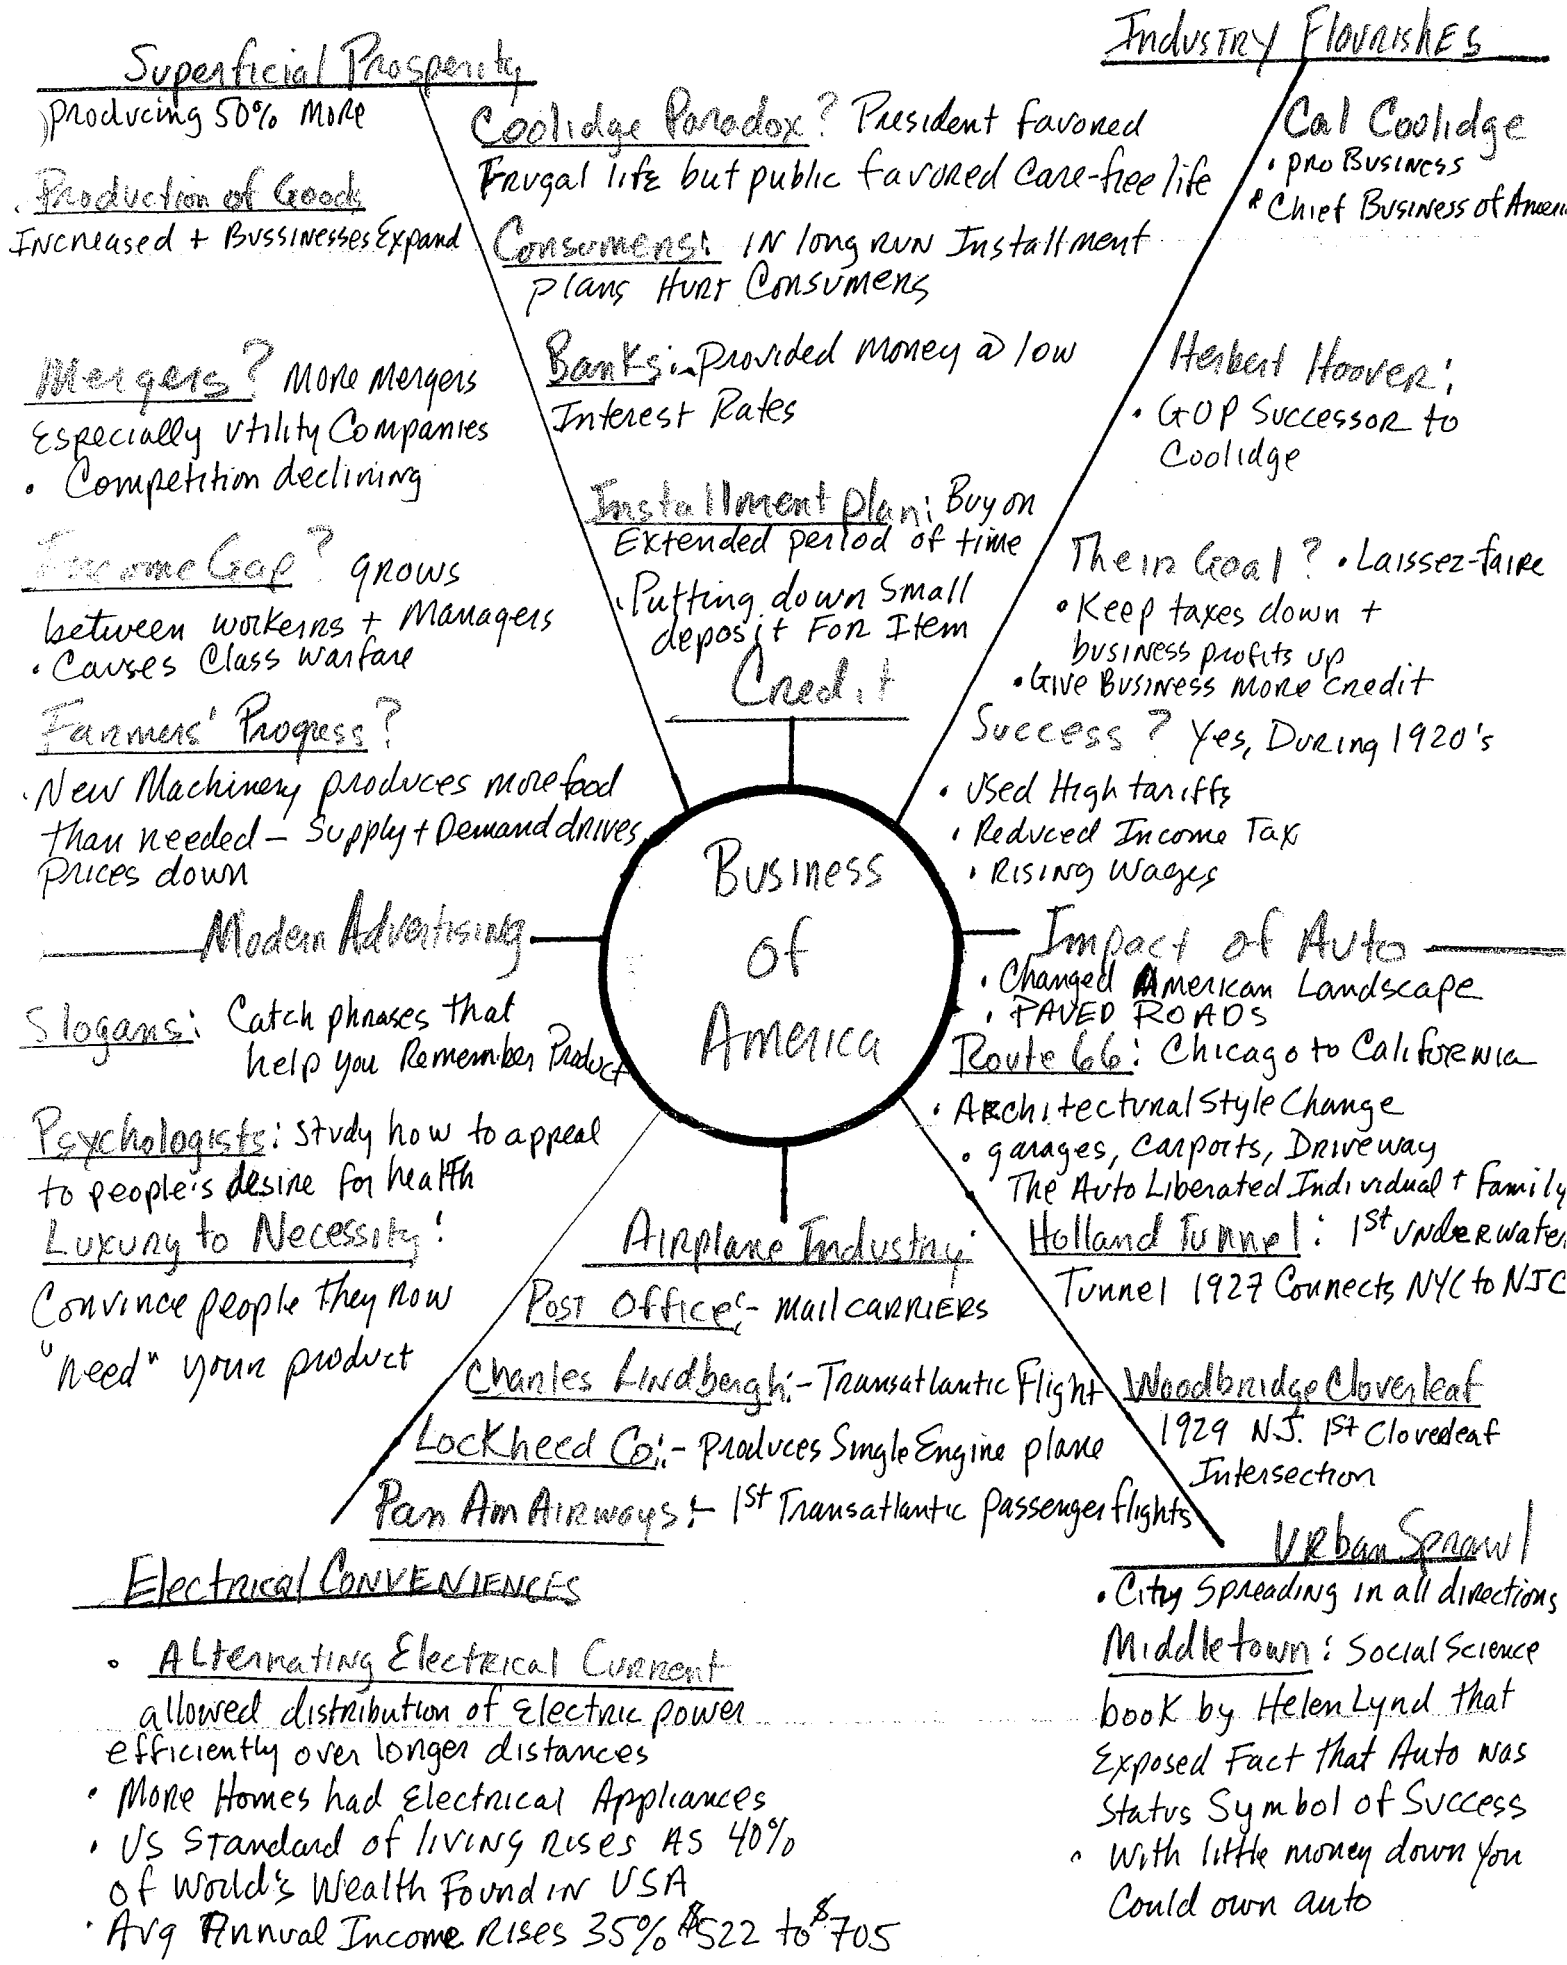 Superficial Prosperity
producing 50% More
Production of Goods
Increased + Bussinesses Expand
Mergers? More Mergers
Especially Utility Companies
• Competition declining
Income Gap? grows
between workerns + Managers
• Causes Class Warfare
Farmers' Progress?
• New Machinery produces more food
than needed – Supply + Demand drives
prices down
Coolidge Paradox? President favored
Frugal life but public favored care-free life
Consumers: IN long run Installment
plans Hurt Consumers
Banks: Provided Money @ low
Interest Rates
Installment plan: Buy on
Extended period of time
• Putting down Small
deposit For Item
Credit
Industry Flourishes
Cal Coolidge
• pro Business
• Chief Business of Ameri
Herbert Hoover:
• GOP Successor to
Coolidge
Their Goal? • Laissez-faire
• Keep taxes down +
business profits up
• Give Business more credit
Success? Yes, During 1920's
• Used High tariffs
• Reduced Income Tax
• Rising Wages
Business
of
America
Modern Advertising
Slogans: Catch phrases that
help you Remember Product
Psychologists: Study how to appeal
to people's desire for health
Luxury to Necessity:
Convince people they now
"need" your product
Impact of Auto
• Changed American Landscape
• PAVED ROADS
Route 66: Chicago to California
• Architectural Style Change
• garages, carports, Driveway
The Auto Liberated Individual + Family
Holland Tunnel: 1st Underwater
Tunnel 1927 Connects NYC to NJC
Woodbridge Cloverleaf
1929 N.J. 1st Cloverleaf
Intersection
Airplane Industry:
Post Office:- mail carriers
Charles Lindbergh:- Transatlantic Flight
Lockheed Co:- produces Single Engine plane
Pan Am Airways:- 1st Transatlantic passenger flights
Electrical Conveniences
• Alternating Electrical Current
allowed distribution of Electric power
efficiently over longer distances
• More Homes had Electrical Appliances
• US Standard of living rises AS 40%
of World's Wealth Found in USA
• Avg Annual Income Rises 35% $522 to $705
Urban Sprawl
• City Spreading in all directions
Middletown: Social Science
book by Helen Lynd that
Exposed Fact that Auto was
Status Symbol of Success
• With little money down you
Could own auto